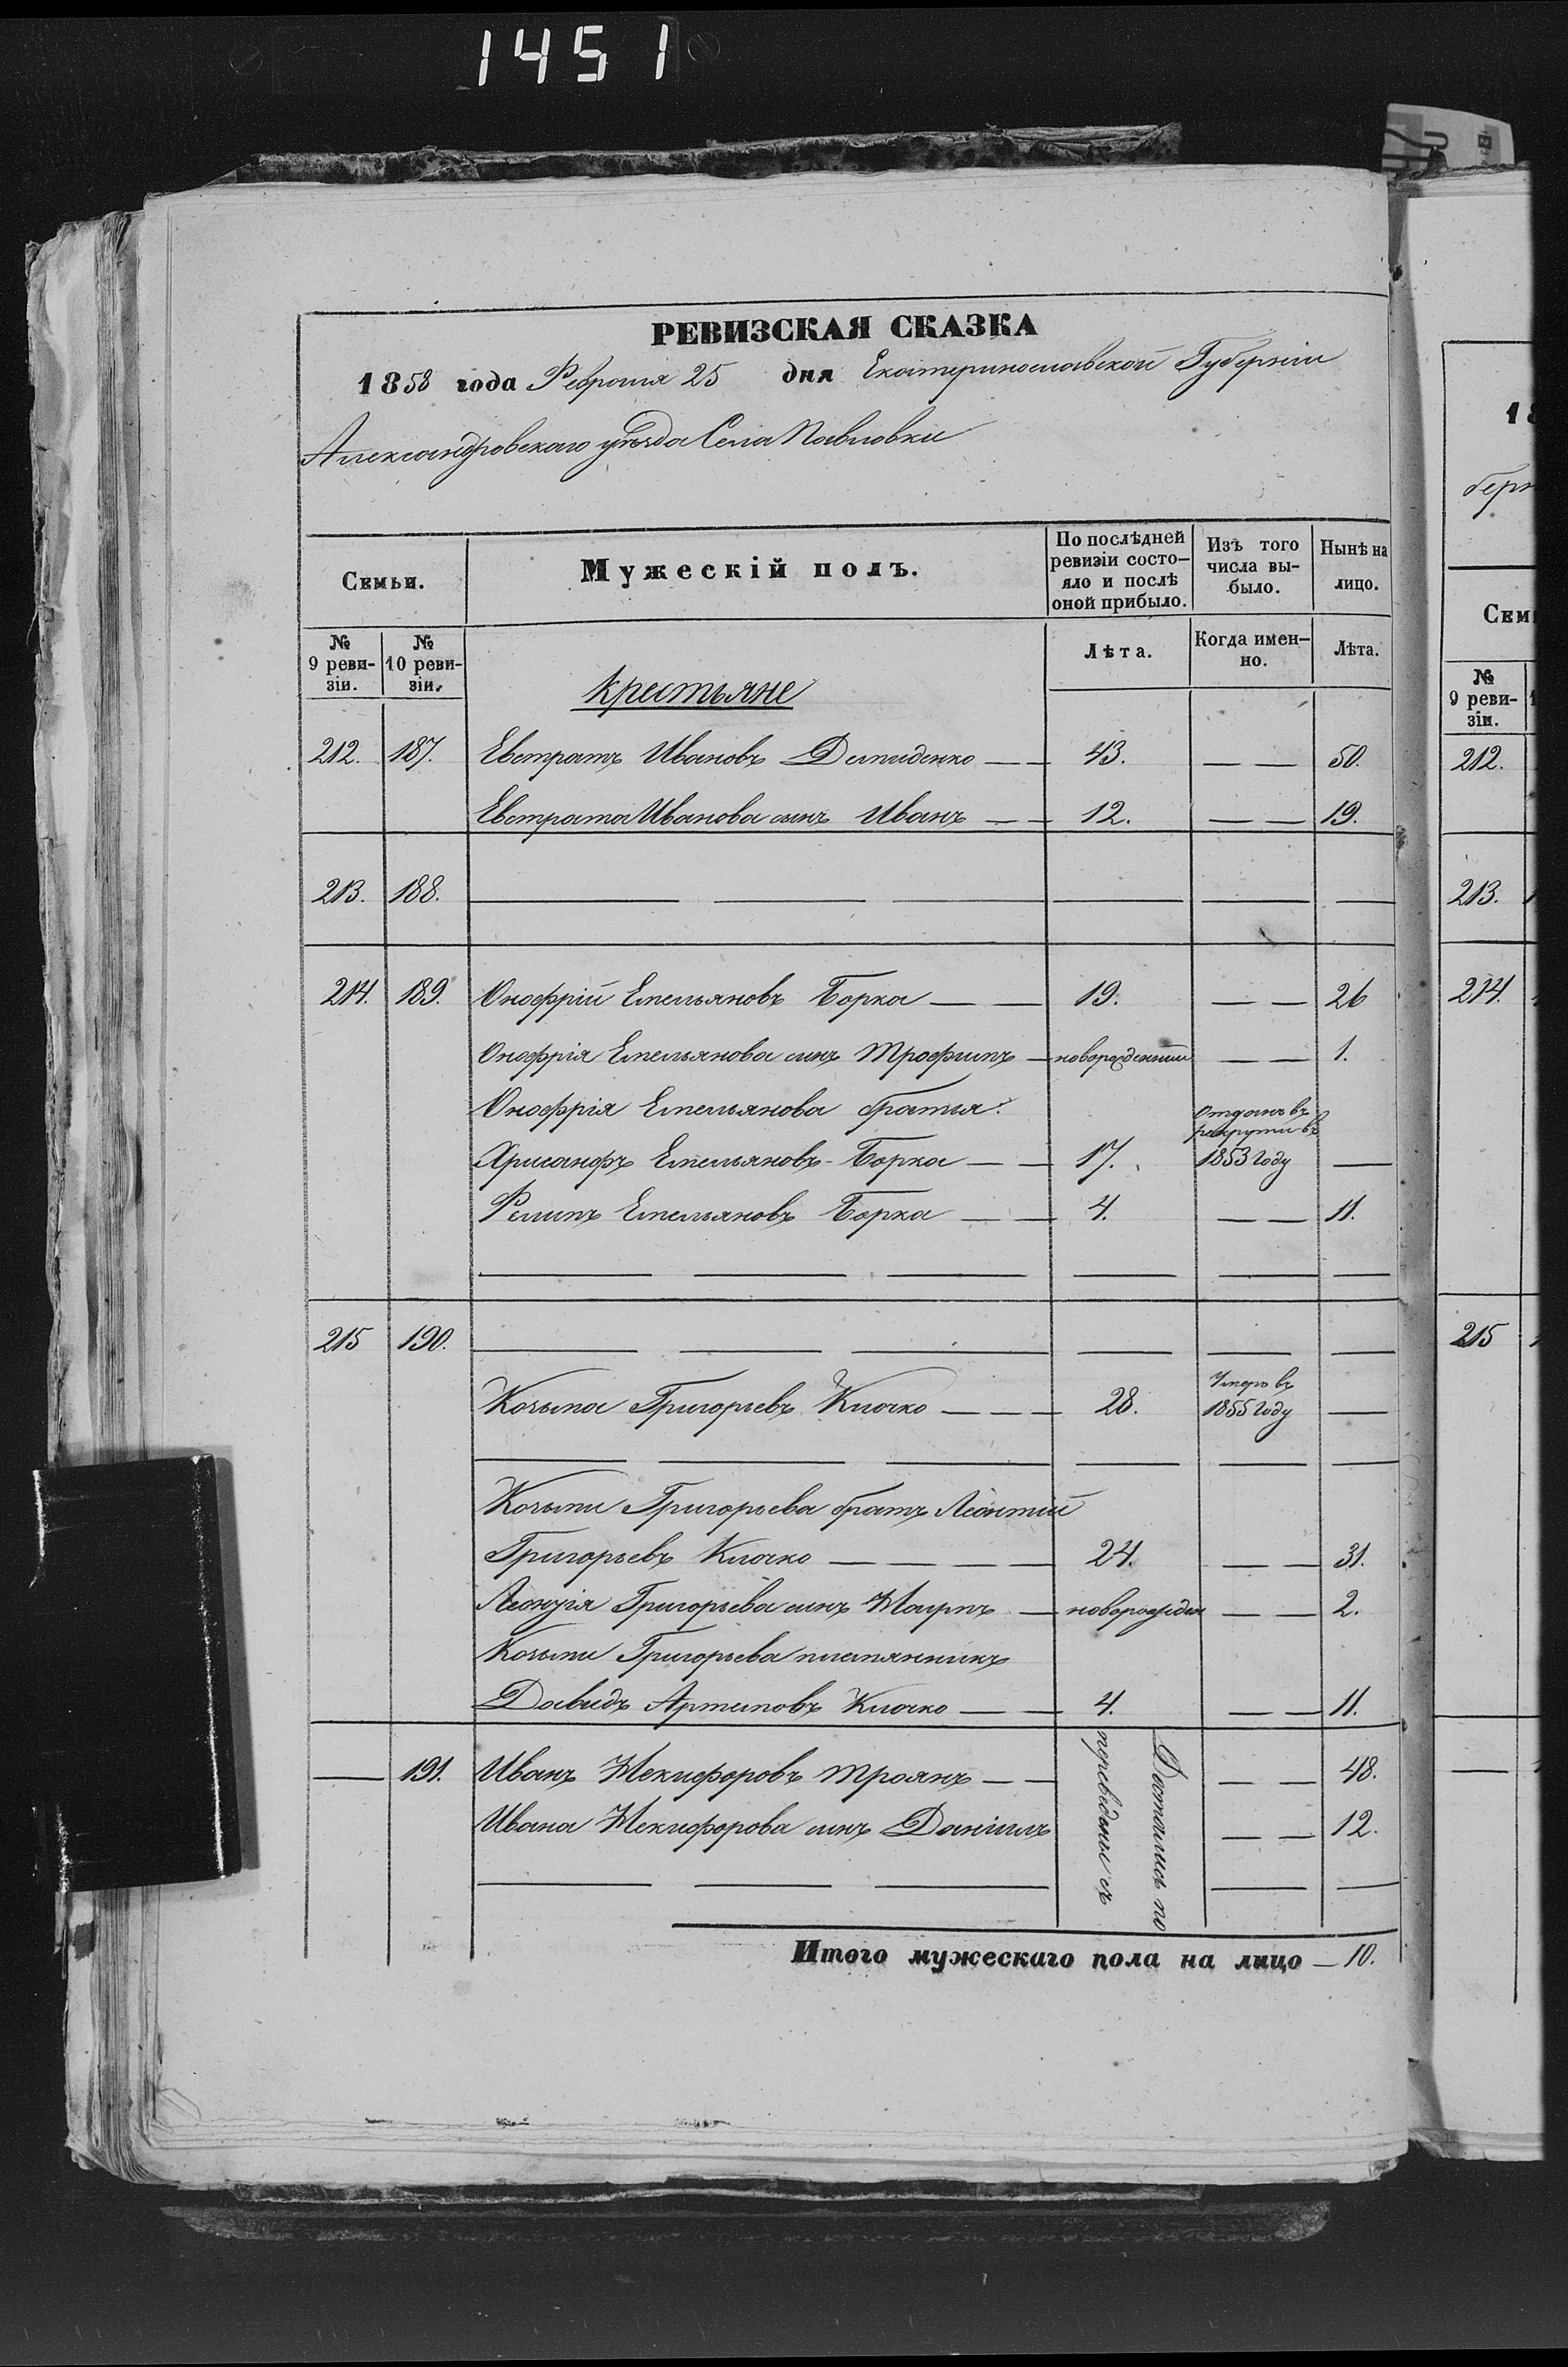 1451
РЕВИЗСКАЯ СКАЗКА
1858 года Февраля 25 дня Екатеринославской Губерніи
Александровскаго уѣзда Села Павловки
Семьи. Мужескій полъ. По послѣдней ревизіи состояло и послѣ оной прибыло. Изъ того числа выбыло. Нынѣ на лицо.
№ 9 ревизіи. № 10 ревизіи. Лѣта. Когда именно. Лѣта.
крестьяне
212. 187. Евстратъ Ивановъ Демиденко — — 43. — — 50.
Евстрата Иванова сынъ Иванъ — — 12. — — 19.
213. 188. — — — — — —
214. 189. Онофрій Емельяновъ Борка — — 19. — — 26
Онофрія Емельянова сынъ Трофимъ — новорожденный — — 1.
Онофрія Емельянова братья:
Хрисанфъ Емельяновъ Борка — — 17. Отданъ въ рекруты въ 1853 Году —
Филипъ Емельяновъ Борка — — 4. — — 11.
— — — — — —
215 190. — — — — — —
Козьма Григорьевъ Клочко — — — 28. Умеръ въ 1855 Году —
— — — — — —
Козьмы Григорьева братъ Леонтій
Григорьевъ Клочко — — — — 24. — — 31.
Леонтія Григорьева сынъ Наумъ — новорожден — — 2.
Козьмы Григорьева племянникъ
Давидъ Артемовъ Клочко — — 4. — — 11.
— 191. Иванъ Некифоровъ Троянъ — — — — 48.
Ивана Некифорова сынъ Даніилъ — — 12.
Достались по
переведены съ
— — — — —
Итого мужескаго пола на лицо — 10.
18
берн
Семь
№ 9 ревизіи.
212.
213.
214.
215